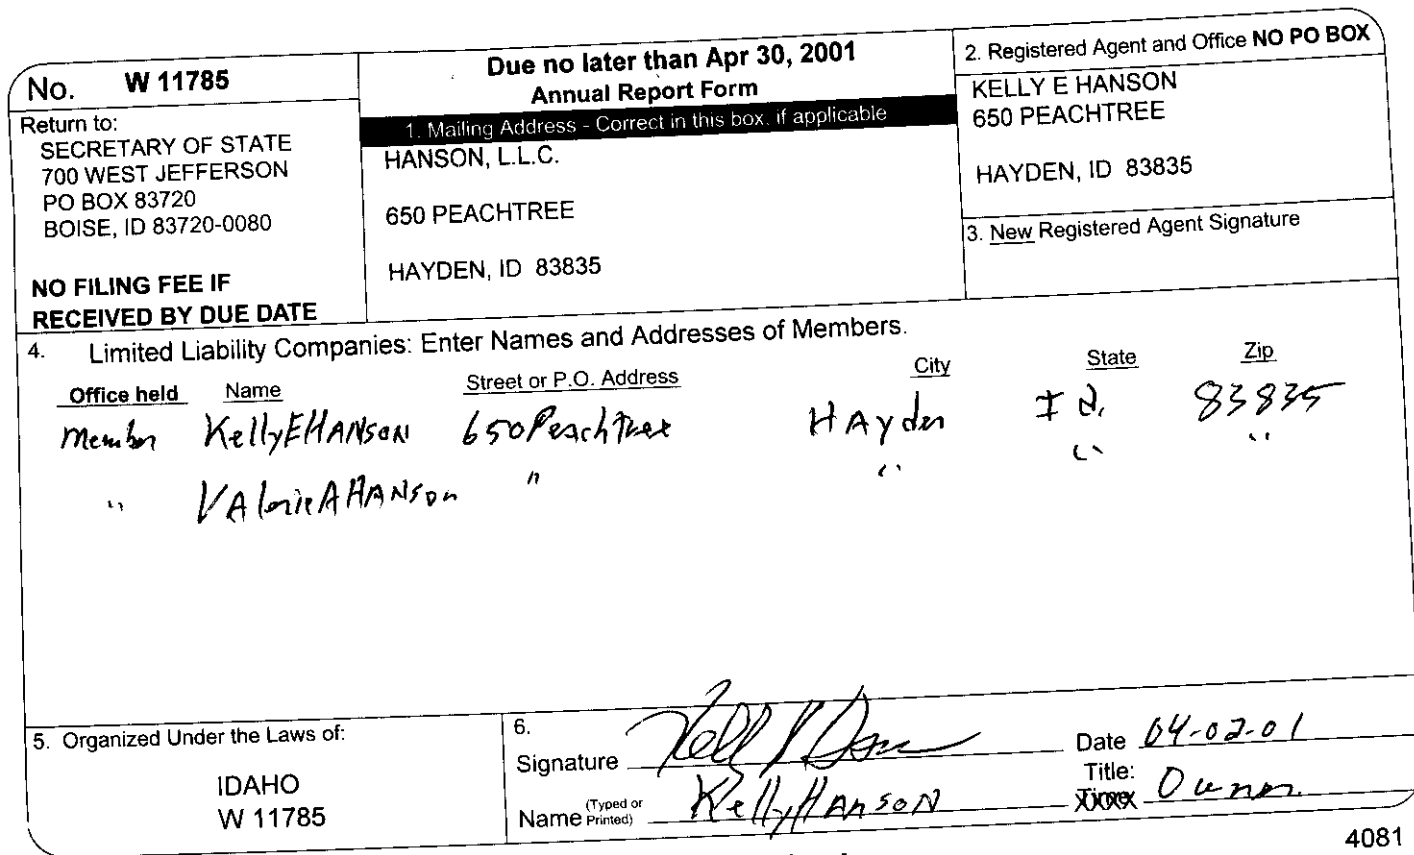 No. W 11785
Return to:
SECRETARY OF STATE
700 WEST JEFFERSON
PO BOX 83720
BOISE, ID 83720-0080
NO FILING FEE IF
RECEIVED BY DUE DATE
Due no later than Apr 30, 2001
Annual Report Form
1. Mailing Address - Correct in this box, if applicable
HANSON, L.L.C.
650 PEACHTREE
HAYDEN, ID 83835
2. Registered Agent and Office NO PO BOX
KELLY E HANSON
650 PEACHTREE
HAYDEN, ID 83835
3. New Registered Agent Signature
4. Limited Liability Companies: Enter Names and Addresses of Members.
Office held Name Street or P.O. Address City State Zip
Member Kelly E HANSON 650 Peachtree HAyden Id. 83835
" VAlerie A HANSon " " " "
5. Organized Under the Laws of:
IDAHO
W 11785
6.
Signature Date 04-02-01
Name (Typed or Printed) Kelly HANSON Title: Owner
4081